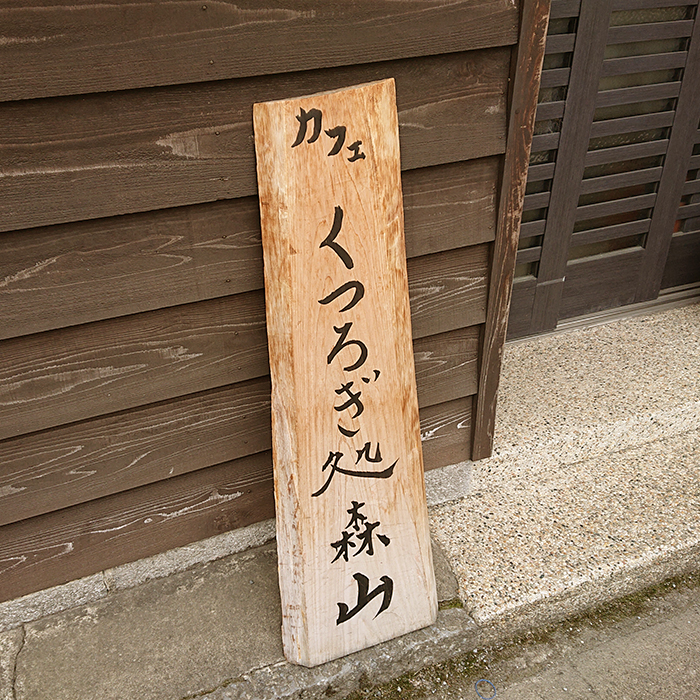 カフェ くつろぎ処 森山